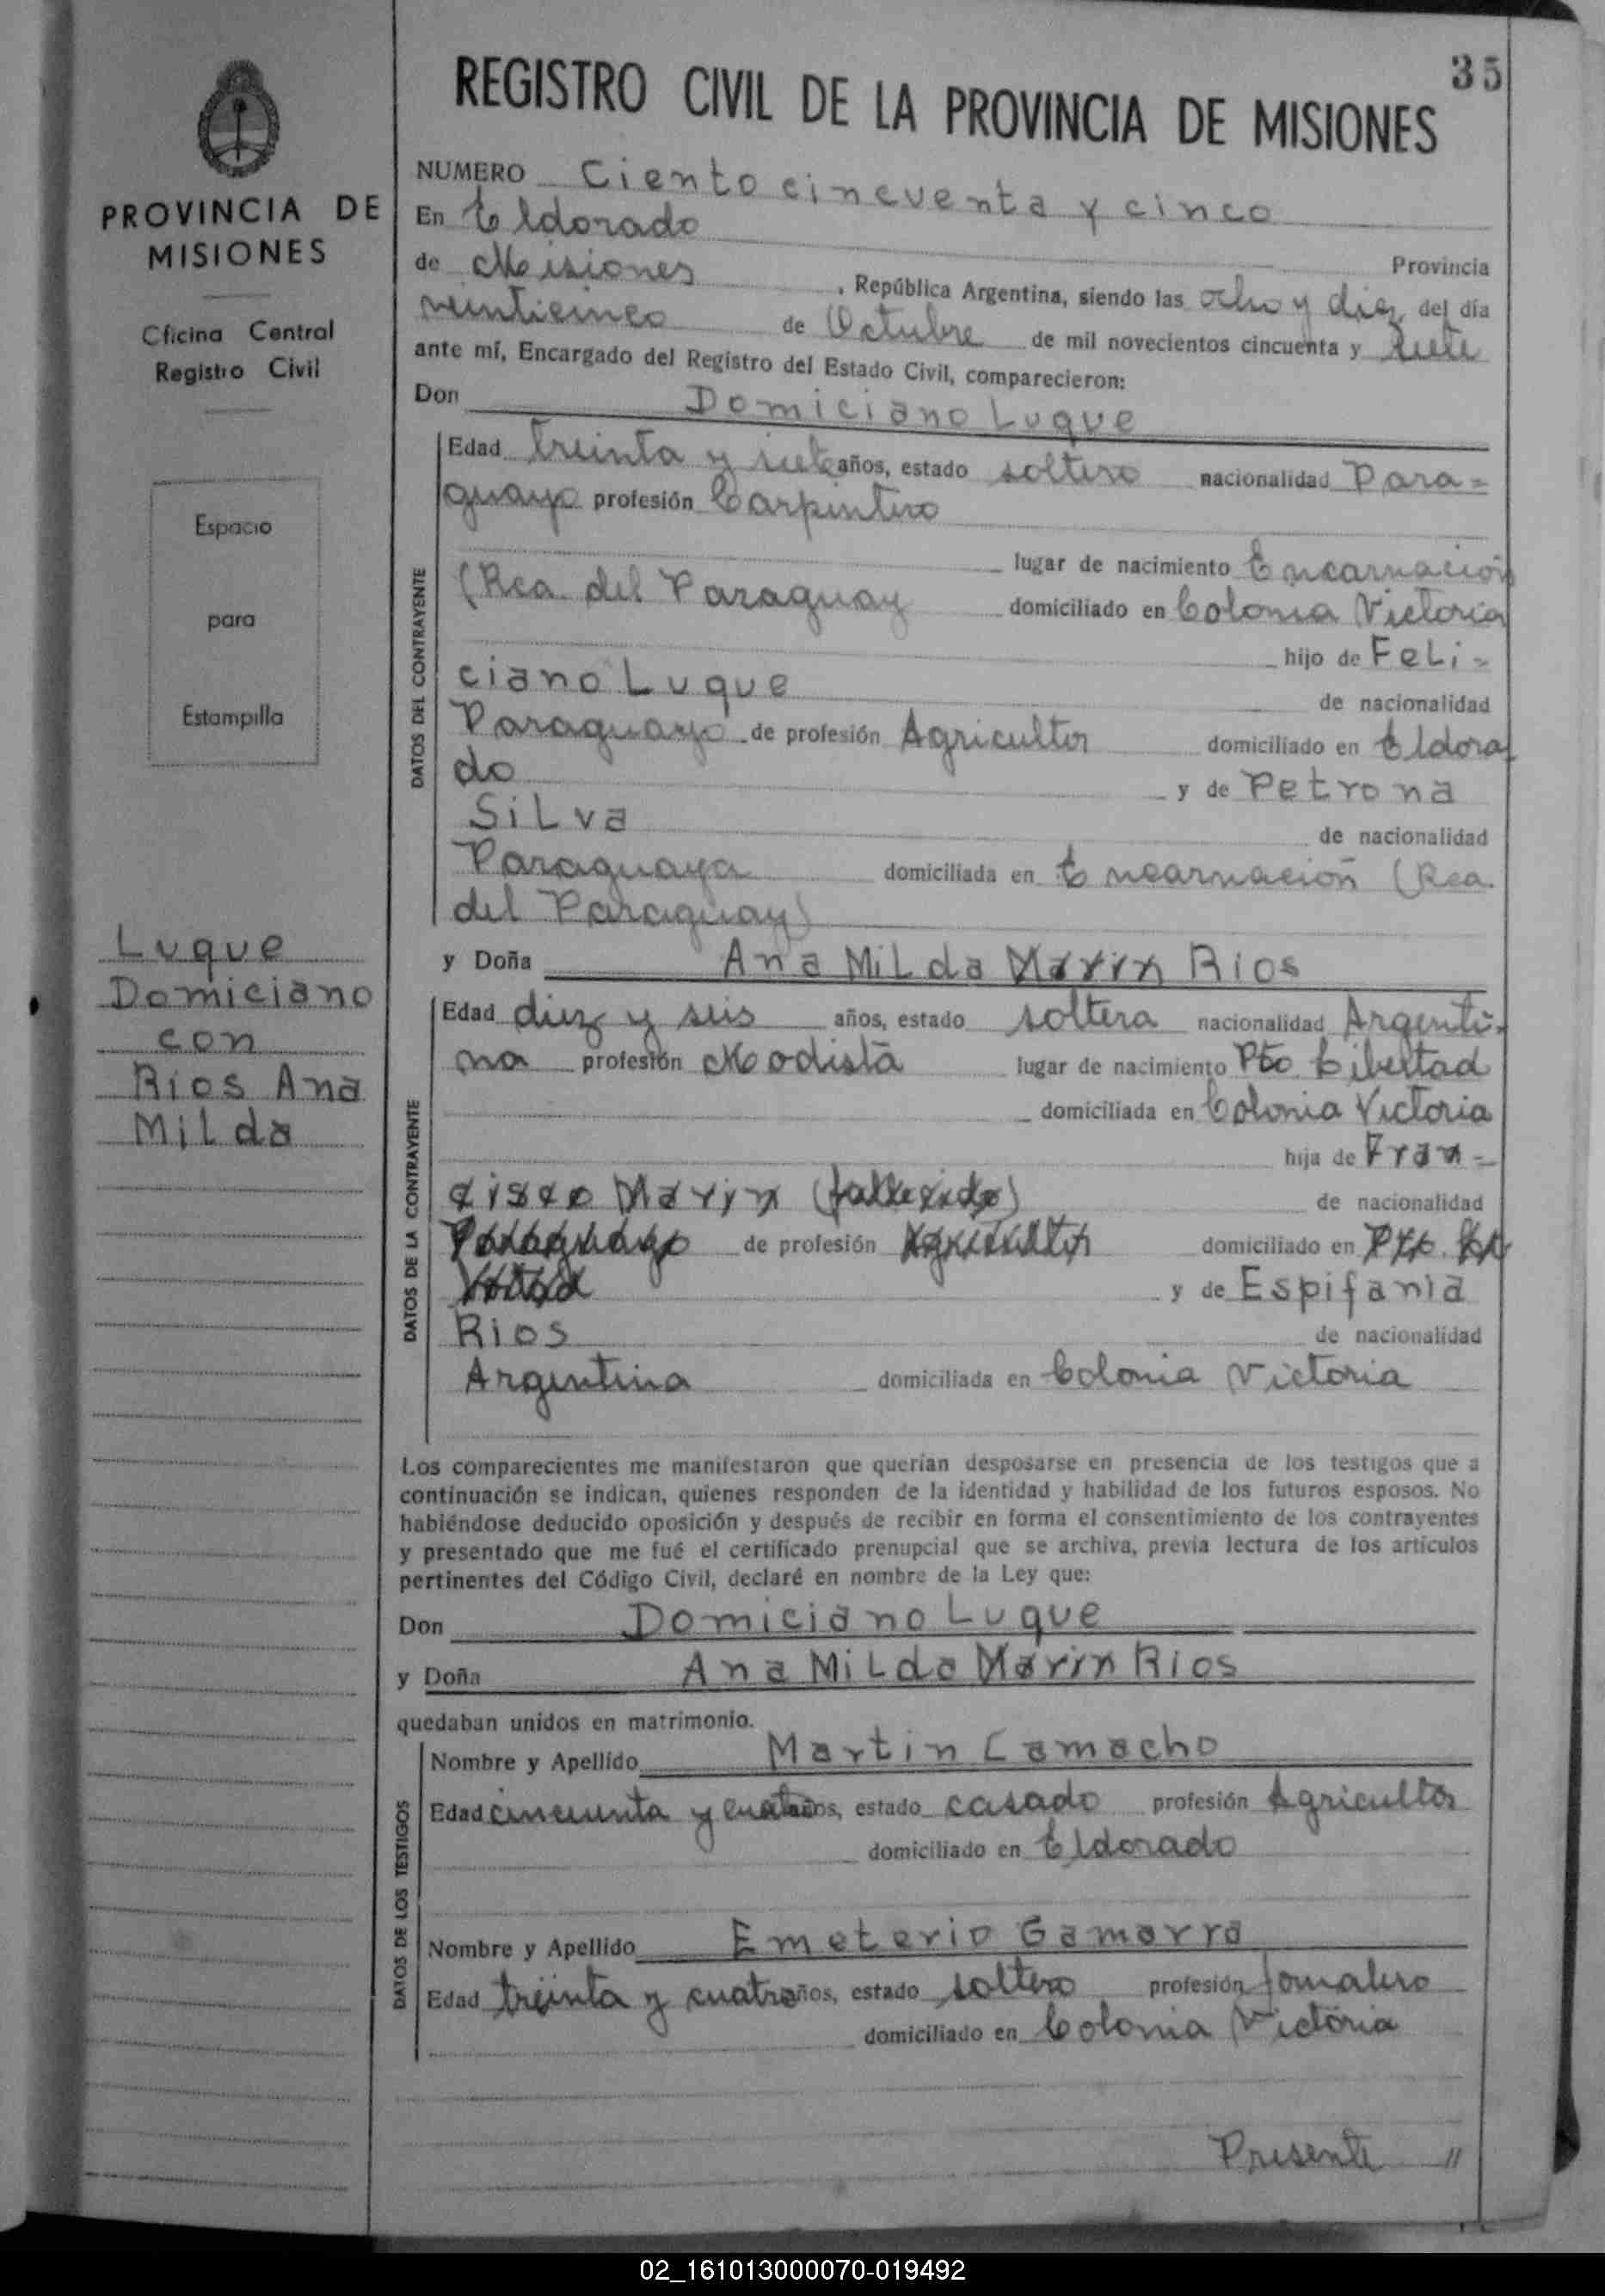 35
REGISTRO CIVIL DE LA PROVINCIA DE MISIONES
PROVINCIA DE
MISIONES
Oficina Central
Registro Civil
Espacio
para
Estampilla
Luque
Domiciano
con
Rios Ana
Milda
NUMERO Ciento cincuenta y cinco
En Eldorado Provincia
de Misiones, República Argentina, siendo las ocho y diez del día
veinticinco de Octubre de mil novecientos cincuenta y siete
ante mí, Encargado del Registro del Estado Civil, comparecieron:
Don Domiciano Luque
DATOS DEL CONTRAYENTE
Edad treinta y siete años, estado soltero nacionalidad Para=
guayo profesión Carpintero
lugar de nacimiento Encarnación
(Rca. del Paraguay domiciliado en Colonia Victoria
hijo de Feli=
ciano Luque de nacionalidad
Paraguayo de profesión Agricultor domiciliado en Eldora
do y de Petrona
Silva de nacionalidad
Paraguaya domiciliada en Encarnación (Rca.
del Paraguay)
y Doña Ana Milda Marin Rios
DATOS DE LA CONTRAYENTE
Edad diez y seis años, estado soltera nacionalidad Argenti-
na profesión Modista lugar de nacimiento Pto Libertad
domiciliada en Colonia Victoria
hija de Fran=
cisco Marin (fallecido) de nacionalidad
Paraguayo de profesión Agricultor domiciliado en Pto. Li
bertad y de Espifania
Rios de nacionalidad
Argentina domiciliada en Colonia Victoria
Los comparecientes me manifestaron que querían desposarse en presencia de los testigos que a
continuación se indican, quienes responden de la identidad y habilidad de los futuros esposos. No
habiéndose deducido oposición y después de recibir en forma el consentimiento de los contrayentes
y presentado que me fué el certificado prenupcial que se archiva, previa lectura de los artículos
pertinentes del Código Civil, declaré en nombre de la Ley que:
Don Domiciano Luque
y Doña Ana Milda Marin Rios
quedaban unidos en matrimonio.
DATOS DE LOS TESTIGOS
Nombre y Apellido Martin Camacho
Edad cincuenta y cuatro años, estado casado profesión Agricultor
domiciliado en Eldorado
Nombre y Apellido Emeterio Gamarra
Edad treinta y cuatro años, estado soltero profesión Jornalero
domiciliado en Colonia Victoria
Presente //
02_161013000070-019492